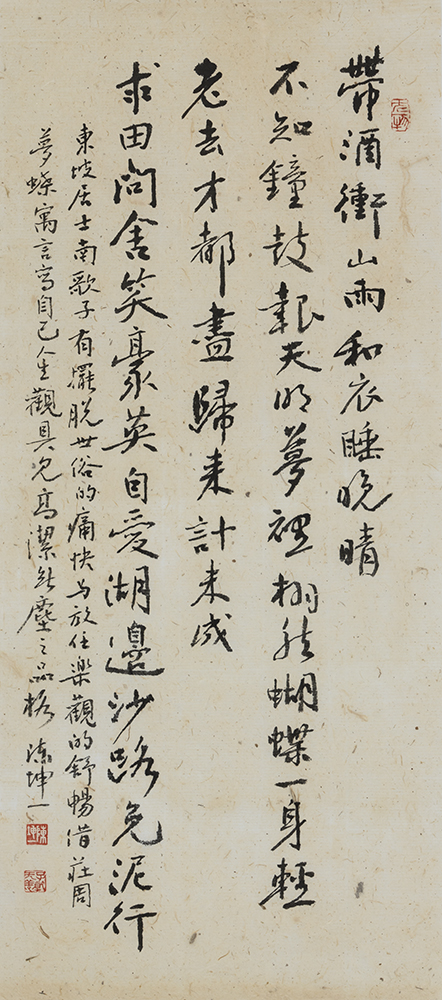 帶酒衝山雨和衣睡晚晴
不知鐘鼓報天明夢裡栩然蝴蝶一身輕
老去才都盡歸來計未成
求田問舍笑豪英自愛湖邊沙路免泥行
東坡居士南歌子有擺脫世俗的痛快与放任樂觀的舒暢借莊周
夢蝶寓言寫自己人生觀具見高潔無塵之品格 陳坤一